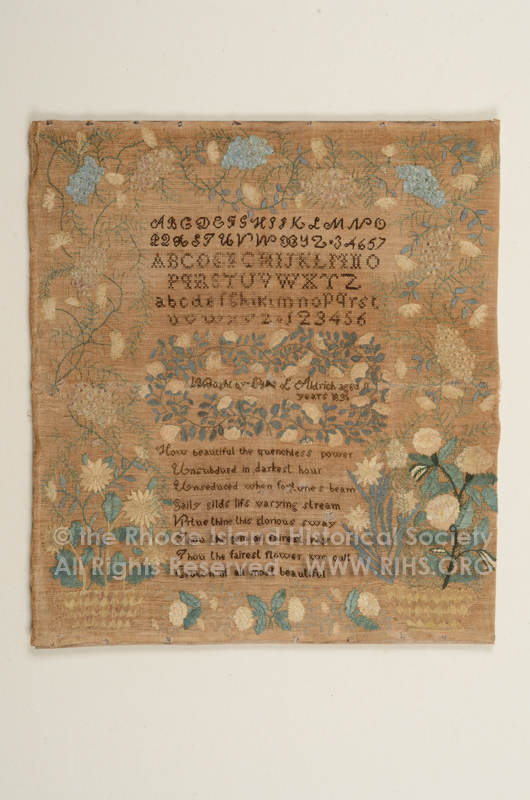 A B C D E F G H I J K L M N O
P Q R S T U V W X Y Z 3 4 6 5 7
A B C D E F G H I J K L M N O
P Q R S T U V W X Y Z
a b c d e f g h i k l m n o p q r s t
u v w x y z 1 2 3 4 5 6
Aldrich aged
years
How beautiful the quenchless power
Unsubdued in darkest hour
Unseduced when fortunes beam
Gaily gilds lifs varying stream
Virtue thine this glorious sway
Thou the fairest
Thou the fairest flower we cull
of all most beautiful
© the Rhode Island Historical Society
All Rights Reserved WWW.RIHS.ORG